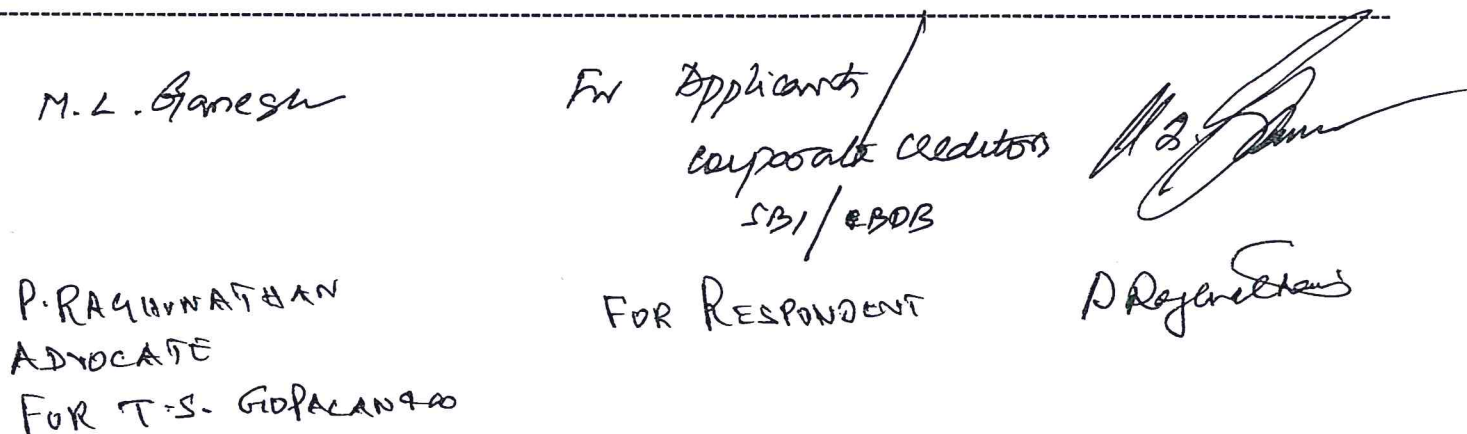 M.L. Ganesh
For Applicants/
corporate creditors
SBI/
P. RAGHUNATHAN
ADVOCATE
FOR T.S. GOPALAN & CO
FOR RESPONDENT
P Raghunathan